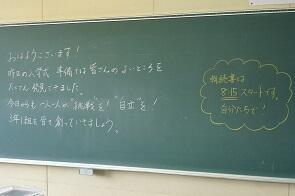 おはようございます！
昨日の入学式 準備では皆さんのよいところを
たくさん発見できました。
今日からも一人一人が"挑戦"を！"自立"を！
3年1組を皆で創っていきましょう。
朝読書は
8:15スタートです。
自分たちで！